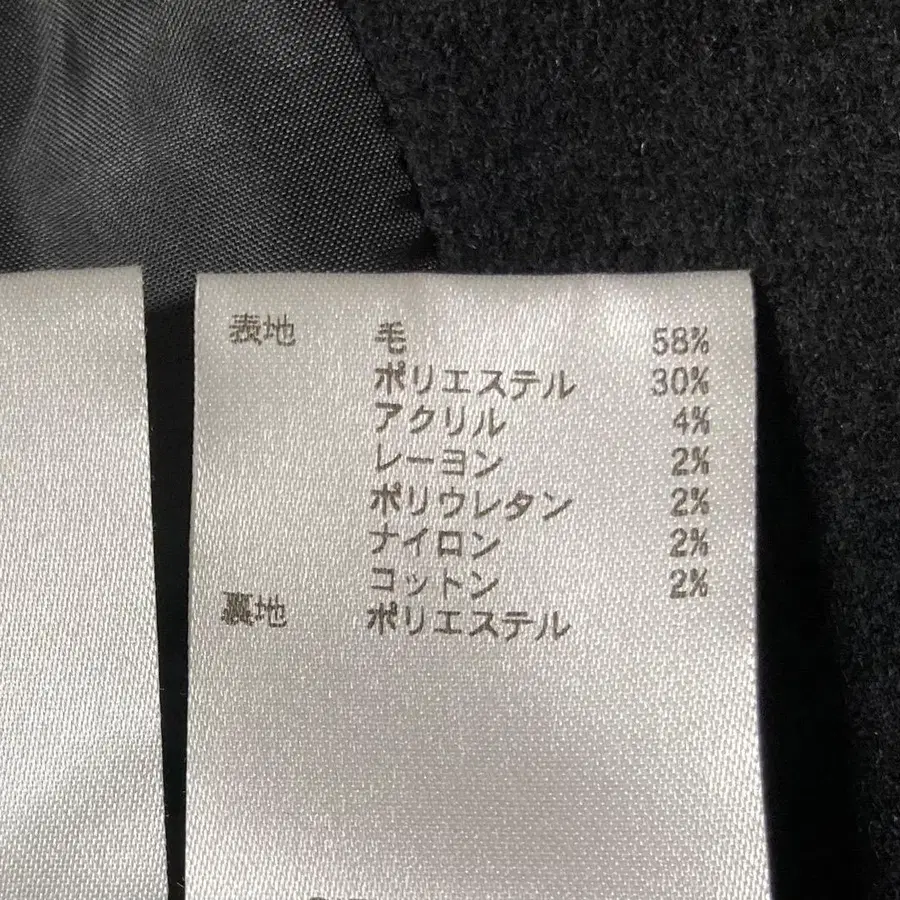 表地 毛 58%
ポリエステル 30%
アクリル 4%
レーヨン 2%
ポリウレタン 2%
ナイロン 2%
コットン 2%
裏地 ポリエステル